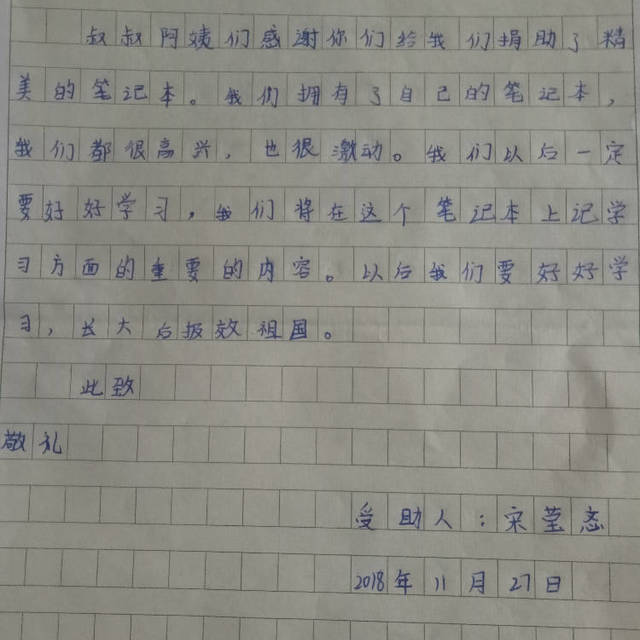 叔叔阿姨们感谢你们给我们捐助了精
美的笔记本。我们拥有了自己的笔记本，
我们都很高兴，也很激动。我们以后一定
要好好学习，我们将在这个笔记本上记学
习方面的重要的内容。以后我们要好好学
习，长大后报效祖国。
此致
敬礼
受助人：宋莹
2018年11月27日